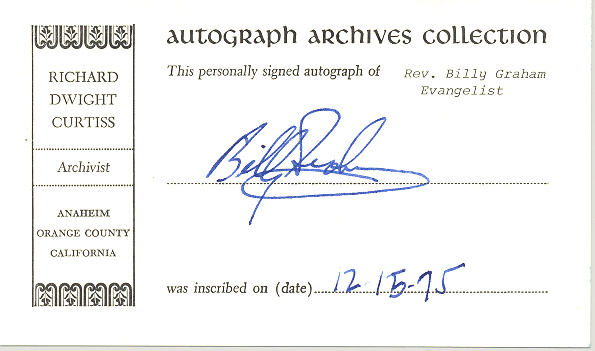 AUTOGRAPH ARCHIVES COLLECTION
RICHARD
DWIGHT
CURTISS
Archivist
ANAHEIM
ORANGE COUNTY
CALIFORNIA
This personally signed autograph of Rev. Billy Graham
Evangelist
Billy Graham
was inscribed on (date) 12-15-75